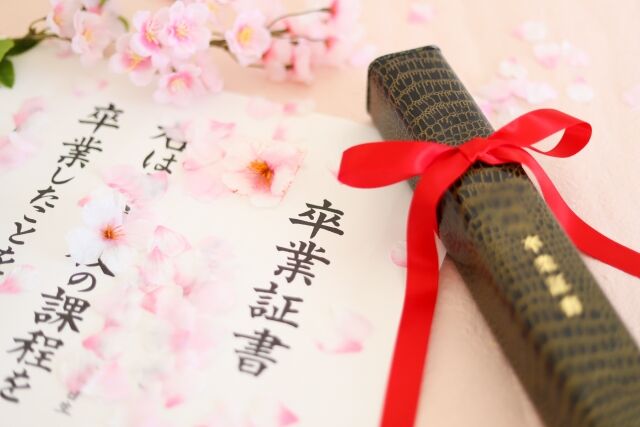 卒業証書
右は
の課程を
卒業したことを
卒業証書